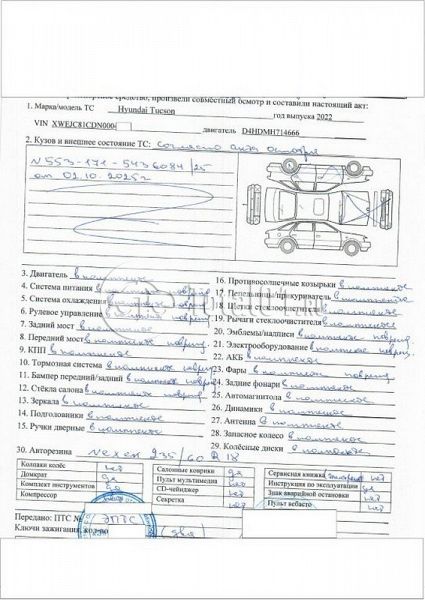 транспортное средство, произвели совместный осмотр и составили настоящий акт:
1. Марка/модель ТС Hyundai Tucson год выпуска 2022
VIN XWEJC81CDN000 двигатель D4HDMH714666
2. Кузов и внешнее состояние ТС: согласно акта осмотра
N 553-171-5436084/25
от 02.10.2025г
3. Двигатель в комплекте
4. Система питания в комплекте повреж
5. Система охлаждения в комплекте повреж
6. Рулевое управление в комплекте повреж
7. Задний мост в комплекте
8. Передний мост в комплекте повреж
9. КПП в комплекте
10. Тормозная система в комплекте повреж
11. Бампер передний/задний в комплекте повреж
12. Стёкла салона в комплекте повреж
13. Зеркала в комплекте
14. Подголовники в комплекте
15. Ручки дверные в комплекте
16. Противосолнечные козырьки в комплекте
17. Пепельница/прикуриватель в комплекте
18. Щетки стеклоочистителя в комплекте
19. Рычаги стеклоочистителя в комплекте
20. Эмблемы/надписи в комплекте повреж
21. Электрооборудование в комплекте повреж
22. АКБ в комплекте
23. Фары в комплекте повреж
24. Задние фонари в комплекте
25. Автомагнитола в комплекте
26. Динамики в комплекте
27. Антенна в комплекте
28. Запасное колесо в комплекте
29. Колёсные диски в комплекте
30. Авторезина Nexen 235/60 R 18
Колпаки колёс нет Салонные коврики да Сервисная книжка
Домкрат да Пульт мультимедиа нет Инструкция по эксплуатации да
Комплект инструментов да CD-чейнджер нет Знак аварийной остановки нет
Компрессор нет Секретка нет Пульт вебасто нет
Передано: ПТС №
ЭПТС
Ключи зажигания, кол-во (два)